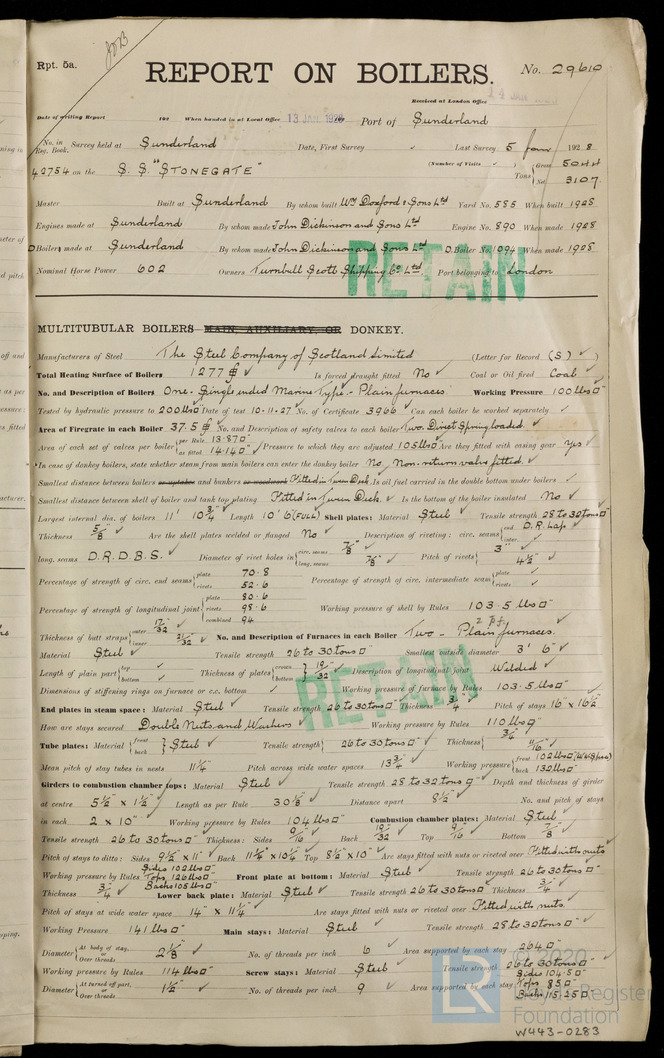 Rpt. 5a.
REPORT ON BOILERS.
No. 29610
Received at London Office
Date of writing Report 192 When handed in at Local Office 13 JAN 1928 Port of Sunderland
No. in Reg. Book. Survey held at Sunderland Date, First Survey Last Survey 5 Jany 1928
(Number of Visits ) Gross 5044
42754 on the S.S. "STONEGATE" Tons Net 3107
Master Built at Sunderland By whom built Wm Doxford & Sons Ltd Yard No. 585 When built 1928
Engines made at Sunderland By whom made John Dickinson and Sons Ltd Engine No. 890 When made 1928
D Boilers made at Sunderland By whom made John Dickinson and Sons Ltd D. Boiler No. 1094 When made 1928
Nominal Horse Power 602 Owners Turnbull Scott Shipping Co Ltd Port belonging to London
RETAIN
MULTITUBULAR BOILERS MAIN, AUXILIARY, OR DONKEY.
Manufacturers of Steel The Steel Company of Scotland Limited (Letter for Record (S) )
Total Heating Surface of Boilers 1277 Is forced draught fitted No Coal or Oil fired Coal
No. and Description of Boilers One - Single ended Marine Type - Plain furnaces Working Pressure 100 lbs
Tested by hydraulic pressure to 200 lbs Date of test 10-11-27 No. of Certificate 3966 Can each boiler be worked separately
Area of Firegrate in each Boiler 37.5 No. and Description of safety valves to each boiler Two Direct Spring loaded
Area of each set of valves per boiler per Rule 13.870" as fitted 14.140" Pressure to which they are adjusted 105 lbs Are they fitted with easing gear yes
In case of donkey boilers, state whether steam from main boilers can enter the donkey boiler No, Non-return valve fitted.
Smallest distance between boilers or uptakes and bunkers or woodwork Fitted in Tween Deck. Is oil fuel carried in the double bottom under boilers
Smallest distance between shell of boiler and tank top plating Fitted in Tween Deck Is the bottom of the boiler insulated No
Largest internal dia. of boilers 11' 10 3/4" Length 10' 6" (FULL) Shell plates: Material Steel Tensile strength 28 to 30 tons
Thickness 5/8" Are the shell plates welded or flanged No Description of riveting: circ. seams end D.R. Lap inter.
long. seams D.R.D.B.S. Diameter of rivet holes in circ. seams 7/8" long. seams 7/8" Pitch of rivets 3" 4 1/2"
Percentage of strength of circ. end seams plate 70.8 rivets 52.6 Percentage of strength of circ. intermediate seam plate rivets
Percentage of strength of longitudinal joint plate 80.6 rivets 98.6 combined 94 Working pressure of shell by Rules 103.5 lbs
Thickness of butt straps outer 17/32" inner 21/32" No. and Description of Furnaces in each Boiler Two - Plain furnaces.
Material Steel Tensile strength 26 to 30 tons Smallest outside diameter 3' 6"
Length of plain part top bottom Thickness of plates crown bottom 19/32" Description of longitudinal joint Welded
Dimensions of stiffening rings on furnace or c.c. bottom Working pressure of furnace by Rules 103.5 lbs
RETAIN
End plates in steam space: Material Steel Tensile strength 26 to 30 tons Thickness 3/4" Pitch of stays 16" x 16 1/2"
How are stays secured Double Nuts and Washers Working pressure by Rules 110 lbs
Tube plates: Material front back Steel Tensile strength 26 to 30 tons Thickness 3/4" 11/16"
Mean pitch of stay tubes in nests 11 1/4" Pitch across wide water spaces 13 3/4" Working pressure front 102 lbs (W.W. Space) back 132 lbs
Girders to combustion chamber tops: Material Steel Tensile strength 28 to 32 tons Depth and thickness of girder
at centre 5 1/2" x 1 1/2" Length as per Rule 30 1/8" Distance apart 8 1/2" No. and pitch of stays
in each 2 x 10" Working pressure by Rules 104 lbs Combustion chamber plates: Material Steel
Tensile strength 26 to 30 tons Thickness: Sides 9/16" Back 19/32" Top 9/16" Bottom 7/8"
Pitch of stays to ditto: Sides 9 1/2" x 11" Back 11 1/4" x 10 1/4" Top 8 1/2" x 10" Are stays fitted with nuts or riveted over Fitted with nuts
Working pressure by Rules Sides 102 lbs Tops 126 lbs Backs 108 lbs Front plate at bottom: Material Steel Tensile strength 26 to 30 tons
Thickness 3/4" Lower back plate: Material Steel Tensile strength 26 to 30 tons Thickness 3/4"
Pitch of stays at wide water space 14" x 11 1/4" Are stays fitted with nuts or riveted over Fitted with nuts
Working Pressure 141 lbs Main stays: Material Steel Tensile strength 28 to 30 tons
Diameter At body of stay, or Over threads 2 1/8" No. of threads per inch 6 Area supported by each stay 264
Working pressure by Rules 114 lbs Screw stays: Material Steel Tensile strength 26 to 30 tons
Diameter At turned off part, or Over threads 1 1/2" No. of threads per inch 9 Area supported by each stay Sides 104.5 Tops 85 Backs 115.25
© 2020
Lloyd's Register
Foundation
W443-0283